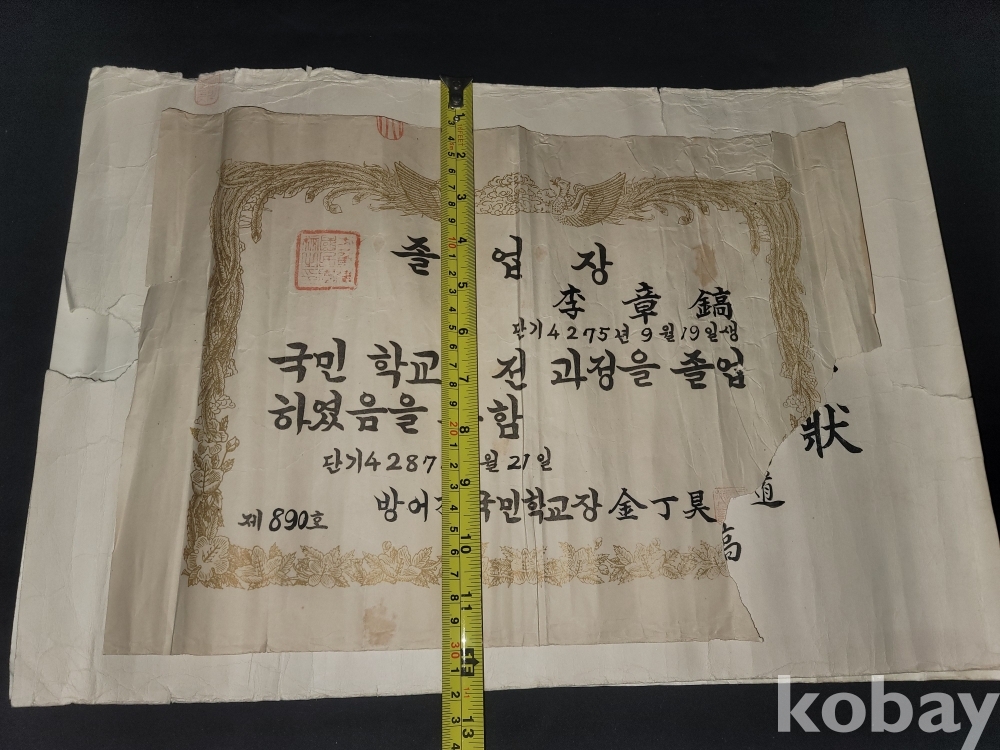 졸 업 장
李 章 鎬
단기4275년 9월 19일생
국민 학교 전 과정을 졸업
하였음을 함
단기4287 월 21일
방어 국민학교장 金丁昊
제 890호
狀
道
kobay